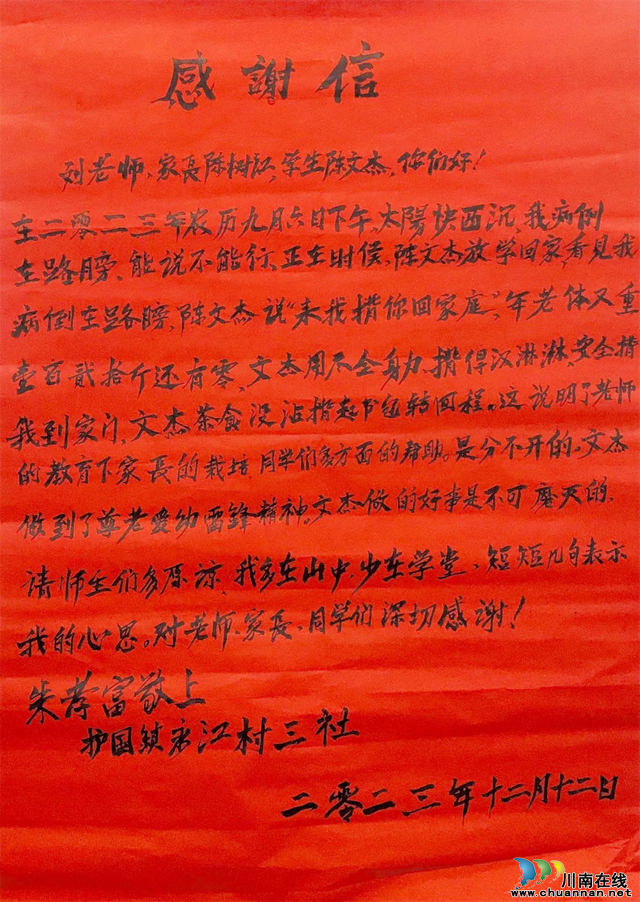 感謝信
刘老师、家長陈树江、学生陈文杰、你们好！
在二零二三年农历九月六日下午、太陽快西沉、我病倒
在路膀、能说不能行、正在时侯、陈文杰放学回家、看見我
病倒在路膀、陈文杰说“来我揹你回家庭”，年老体又重
壹百贰拾斤还有零、文杰用尽全身力、揹得汉淋淋、安全揹
我到家门、文杰茶食没沾揹起书包转回程。这说明了老师
的教育下家長的栽培、同学们多方面的帮助。是分不开的、文杰
做到了尊老爱幼雷锋精神。文杰做的好事是不可磨灭的、
请师生们多原谅、我多在山中、少在学堂、短短几句表示
我的心思。对老师、家長、同学们深切感謝！
朱孝富敬上
护国镇永江村三社
二零二三年十二月十二日
川南在线
www.chuannan.net